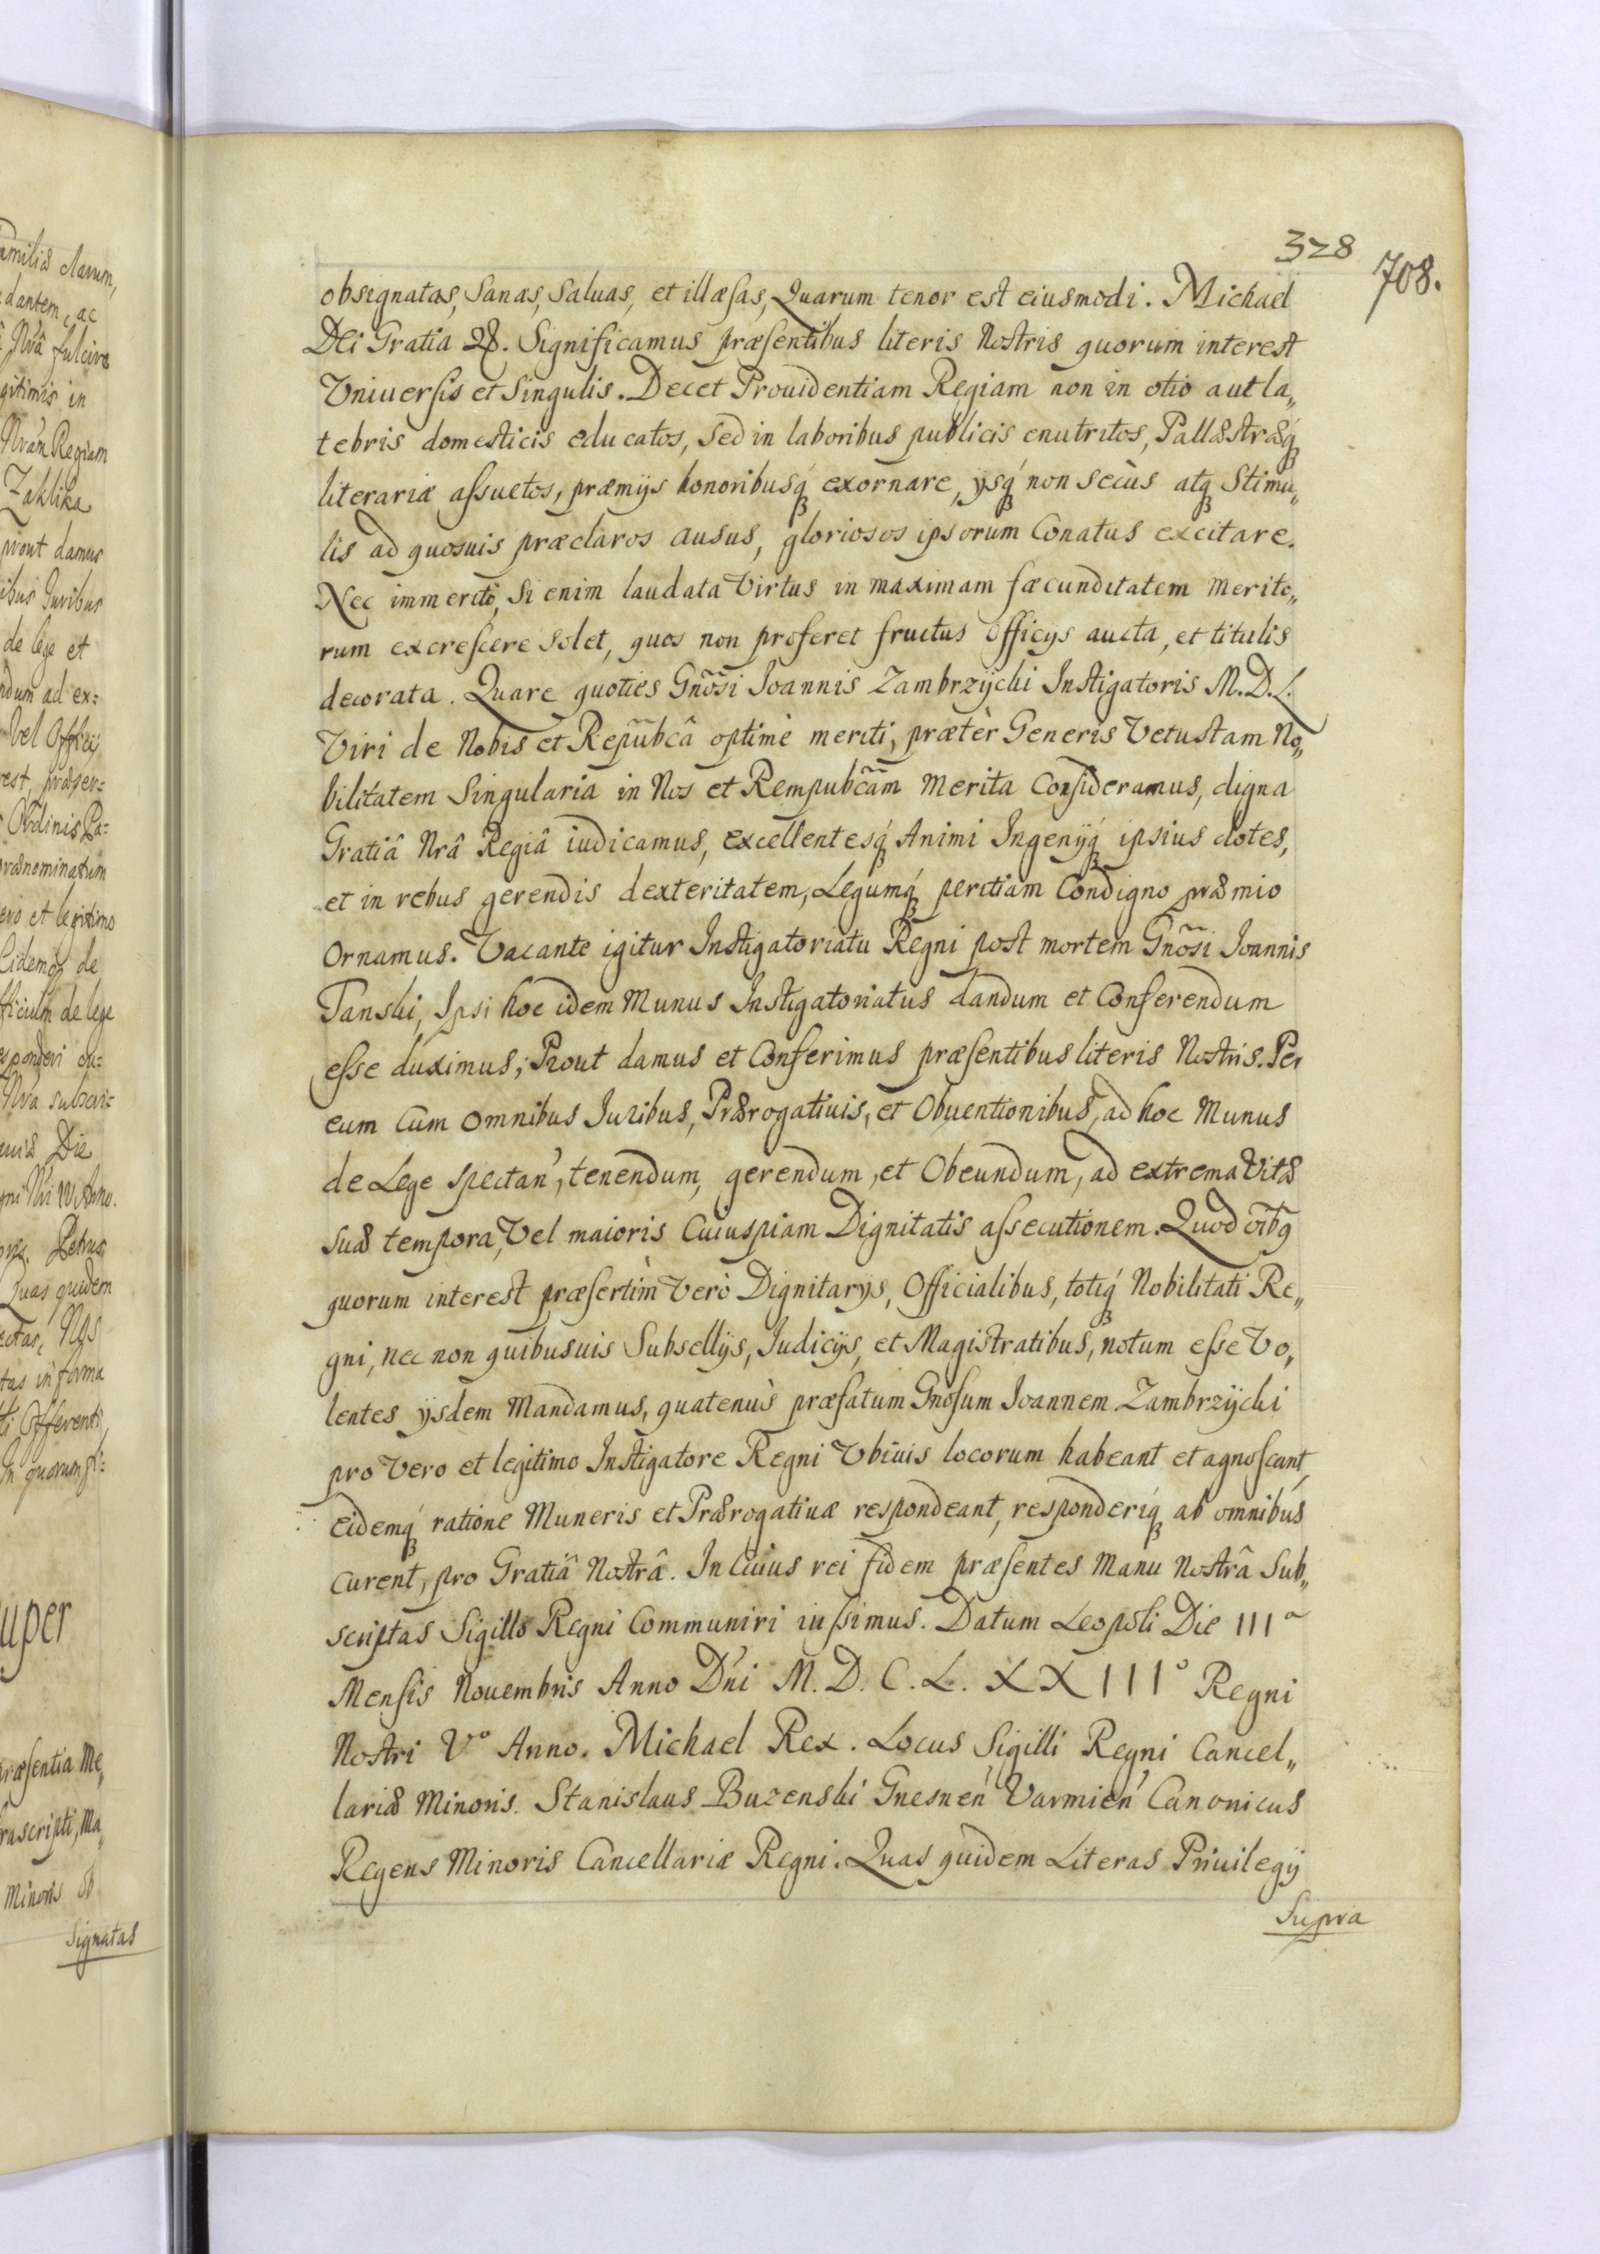 328
708.
obsignatas, Sanas, Saluas, et illæsas, Quarum tenor est eiusmodi. Michael
Dei Gratia &. Significamus præsentibus literis Nostris quorum interest
Vniuersis et Singulis. Decet Prouidentiam Regiam non in otio aut la„
tebris domesticis educatos, Sed in laboribus publicis enutritos, Pallæstræq́
literariæ assuetos, præmijs honoribusq́ exornare, ysq́ non secùs atq Stimu„
lis ad quosuis præclaros ausus, gloriosos ipsorum Conatus excitare.
Nec immeritò, Si enim laudata Virtus in maximam fæcunditatem merito„
rum excrescere Solet, quos non proferet fructus Officys aucta, et titulis
decorata. Quare quoties Gnõsi Joannis Zambrzÿcki Instigatoris M. D. L.
Viri de Nobis et Repũbcâ optimè meriti, prætèr Generis Vetustam No„
bilitatem Singularia in Nos et Rempubc̃am Merita Consideramus, digna
Gratiâ Nrâ Regiâ iudicamus, excellentesq́ Animi Ingenÿq́ ipsius dotes,
et in rebus gerendis dexteritatem, Legumq́ peritiam Condigno præmio
Ornamus. Vacante igitur Instigatoriatu Regni post mortem Gnõsi Joannis
Tanski, Ipsi hoc idem Munus Instigatoriatus dandum et Conferendum
esse duximus; Prout damus et Conferimus præsentibus literis Nostris. Per
eum Cum Omnibus Juribus, Prærogatiuis, et Obuentionibus, ad hoc Munus
de Lege spectan', tenendum, gerendum, et Obeundum, ad extrema Vitæ
suæ tempora, Vel maioris Cuiuspiam Dignitatis assecutionem. Quod oĩbq
quorum interest præsertìm Verò Dignitarys, Officialibus, totiq́ Nobilitati Re„
gni, nec non quibusuis Subsellÿs, Judicÿs, et Magistratibus, notum esse Vo„
lentes ysdem Mandamus, quatenùs præfatum Gnosum Joannem Zambrzÿcki
pro Vero et legitimo Instigatore Regni Vbiuis locorum habeant et agnoscant,
Eidemq́ ratione Muneris et Prærogatiuæ respondeant, responderiq́ ab omnibus
Curent, pro Gratiâ Nostrâ. In Cuius rei fidem præsentes Manu Nostrâ Sub„
scriptas Sigillo Regni Communiri iussimus. Datum Leopoli Die III a
Mensis Nouembris Anno D'ni M. D. C. L. XXIII° Regni
Nostri V° Anno. Michael Rex. Locus Sigilli Regni Cancel„
lariæ Minoris. Stanislaus Buzenski Gnesnen' Varmien' Canonicus
Regens Minoris Cancellariæ Regni. Quas quidem Literas Priuilegÿ
Supra